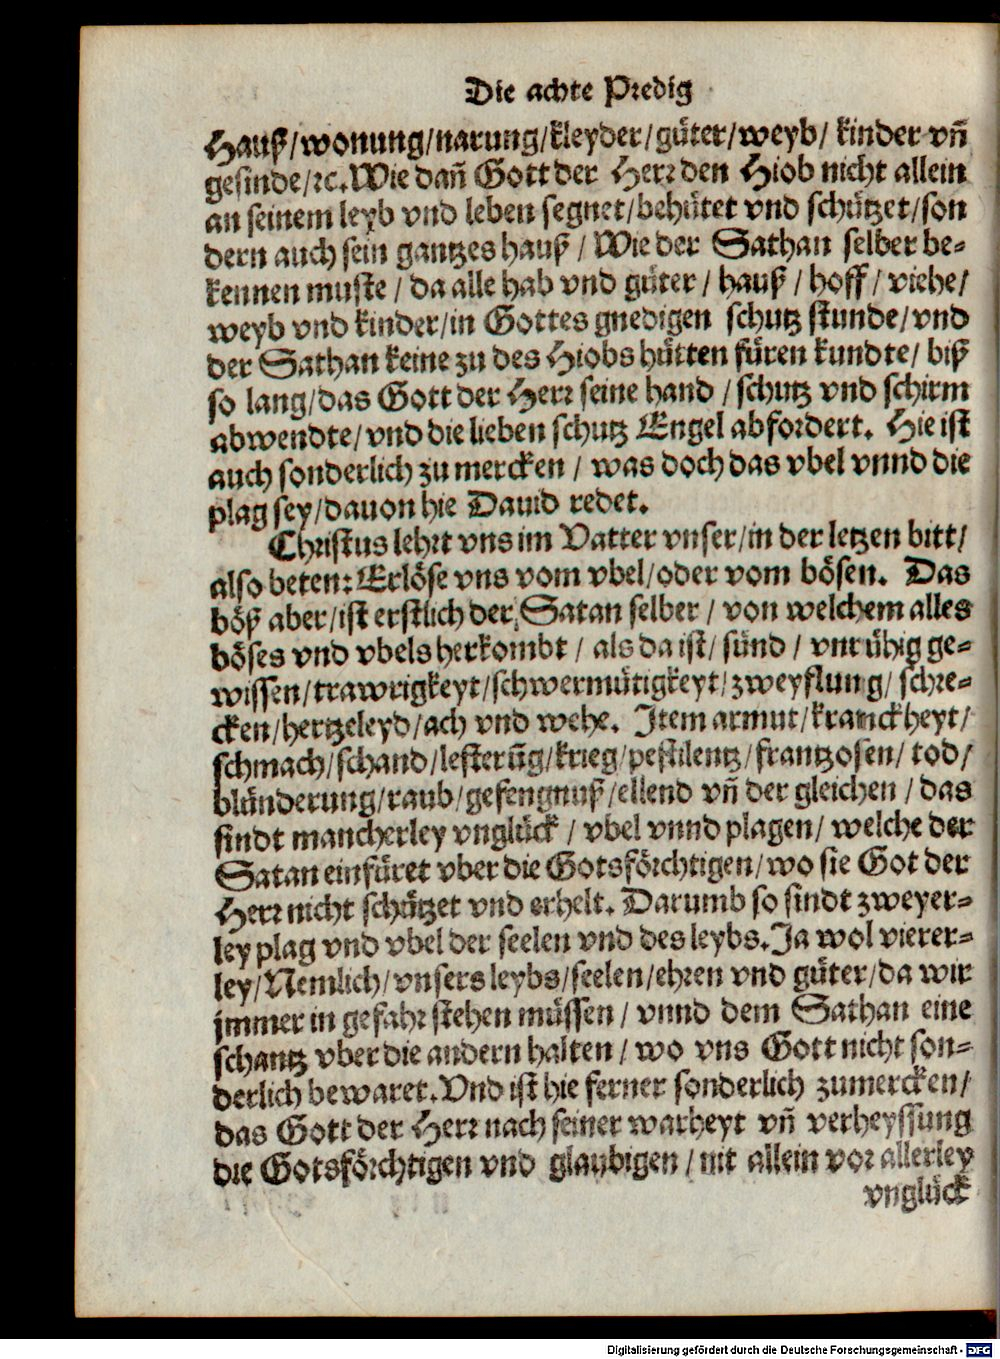 Die achte Predig
Hauß/wonung/narung/kleyder/güter/weyb/ kinder vñ
gesinde/ꝛc. Wie dañ Gott der Herr den Hiob nicht allein
an seinem leyb vnd leben segnet/behütet vnd schützet/son
dern auch sein gantzes hauß / Wie der Sathan selber be-
kennen muste / da alle hab vnd güter / hauß / hoff / viehe/
weyb vnd kinder/in Gottes gnedigen schutz stunde/vnd
der Sathan keine zu des Hiobs hütten füren kundte/ biß
so lang/das Gott der Herr seine hand / schutz vnd schirm
abwendte/vnd die lieben schutz Engel abfordert. Hie ist
auch sonderlich zu mercken / was doch das vbel vnnd die
plag sey/dauon hie Dauid redet.
Christus lehrt vns im Vatter vnser/in der letzen bitt/
also beten: Erlöse vns vom vbel/oder vom bösen. Das
böß aber/ist erstlich der Satan selber / von welchem alles
böses vnd vbels herkombt / als da ist/ sünd / vnrühig ge-
wissen/trawrigkeyt/schwermütigkeyt/zweyflung/ schre-
cken/hertzeleyd/ach vnd wehe. Item armut/kranckheyt/
schmach/schand/lesterũg/krieg/pestilentz/frantzosen/ tod/
blünderung/raub/gefengnuß/ellend vñ der gleichen / das
sindt mancherley vnglück / vbel vnnd plagen/ welche der
Satan einfüret vber die Gotsförchtigen/wo sie Got der
Herr nicht schützet vnd erhelt. Darumb so sindt zweyer-
ley plag vnd vbel der seelen vnd des leybs. Ja wol vierer-
ley/Nemlich/vnsers leybs/seelen/ehren vnd güter/da wir
jmmer in gefahr stehen müssen / vnnd dem Sathan eine
schantz vber die andern halten / wo vns Gott nicht son-
derlich bewaret. Vnd ist hie ferner sonderlich zumercken/
das Gott der Herr nach seiner warheyt vñ verheyssung
die Gotsförchtigen vnd glaubigen / nit allein vor allerley
vnglück
Digitalisierung gefördert durch die Deutsche Forschungsgemeinschaft - DFG